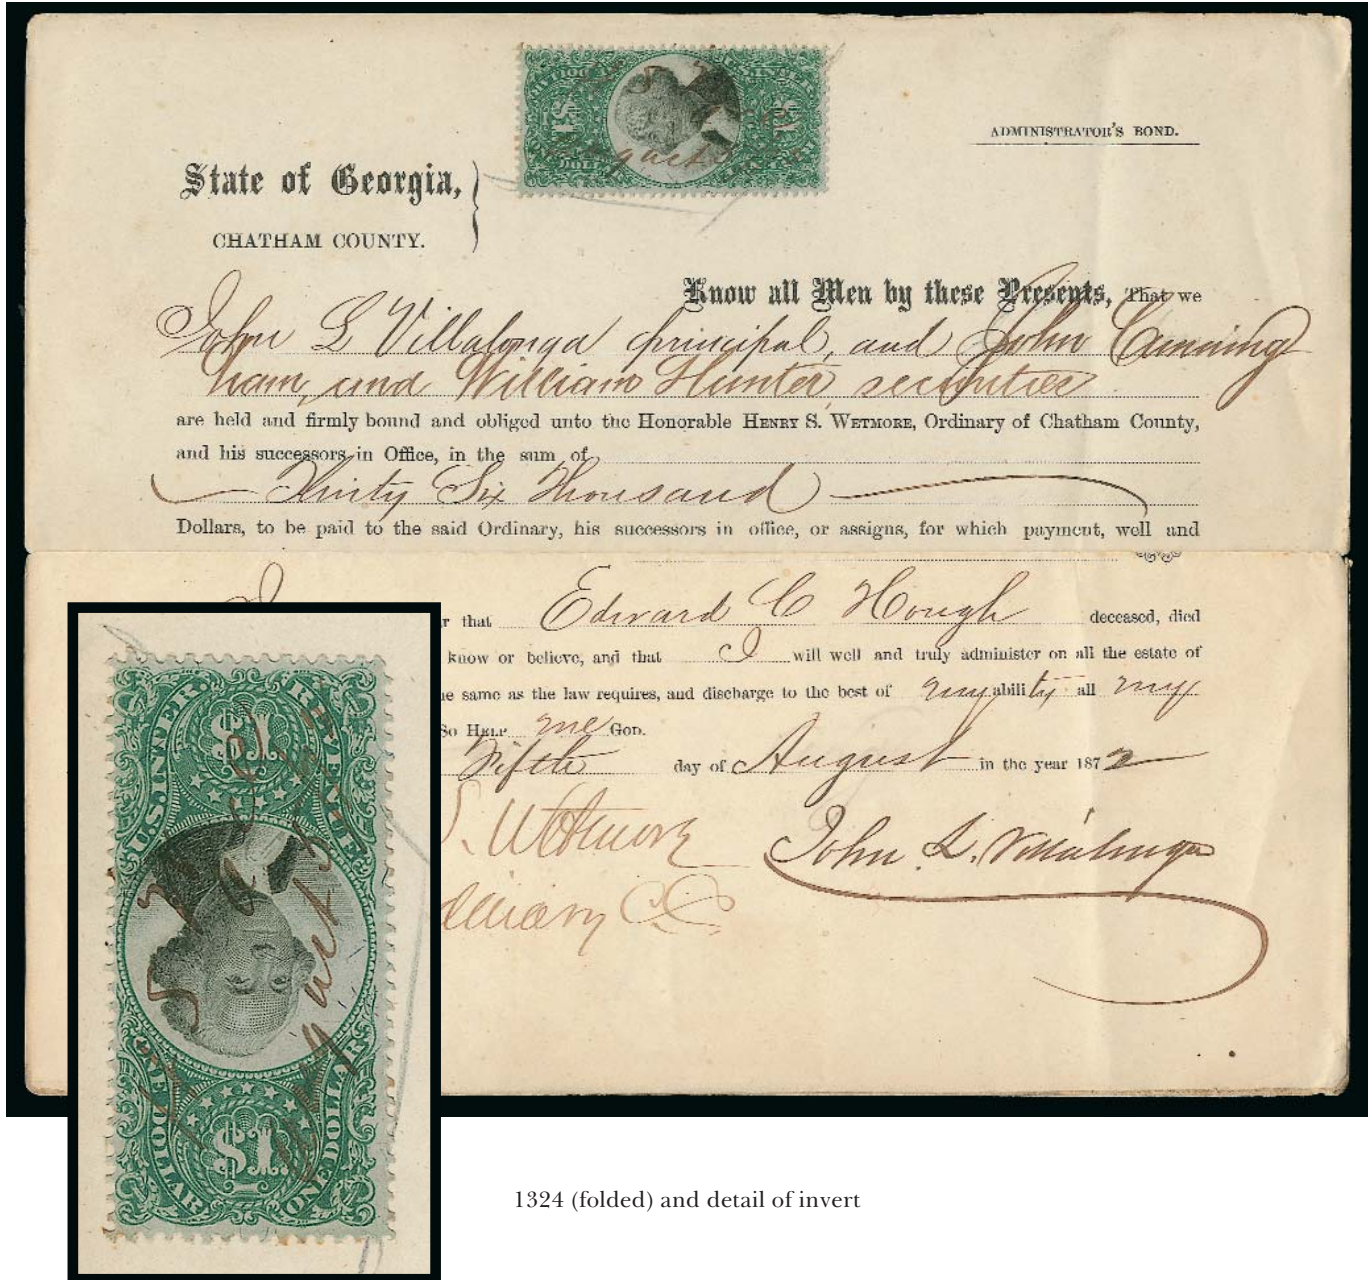 ADMINISTRATOR'S BOND.
State of Georgia,
CHATHAM COUNTY.
Know all Men by these Presents, That we
John L Villalonga principal, and John Cunning
ham, and William Hunter, securities
are held and firmly bound and obliged unto the Honorable HENRY S. WETMORE, Ordinary of Chatham County,
and his successors in Office, in the sum of
Thirty Six Thousand
Dollars, to be paid to the said Ordinary, his successors in office, or assigns, for which payment, well and
that Edward C Hough deceased, died
know or believe, and that I will well and truly administer on all the estate of
same as the law requires, and discharge to the best of my ability all my
So HELP me God.
Fifth day of August in the year 1872
S. Wetmore John L. Villalonga
U.S. INTER. REVENUE
$1
$1
ONE DOLLAR
ONE DOLLAR
1324 (folded) and detail of invert